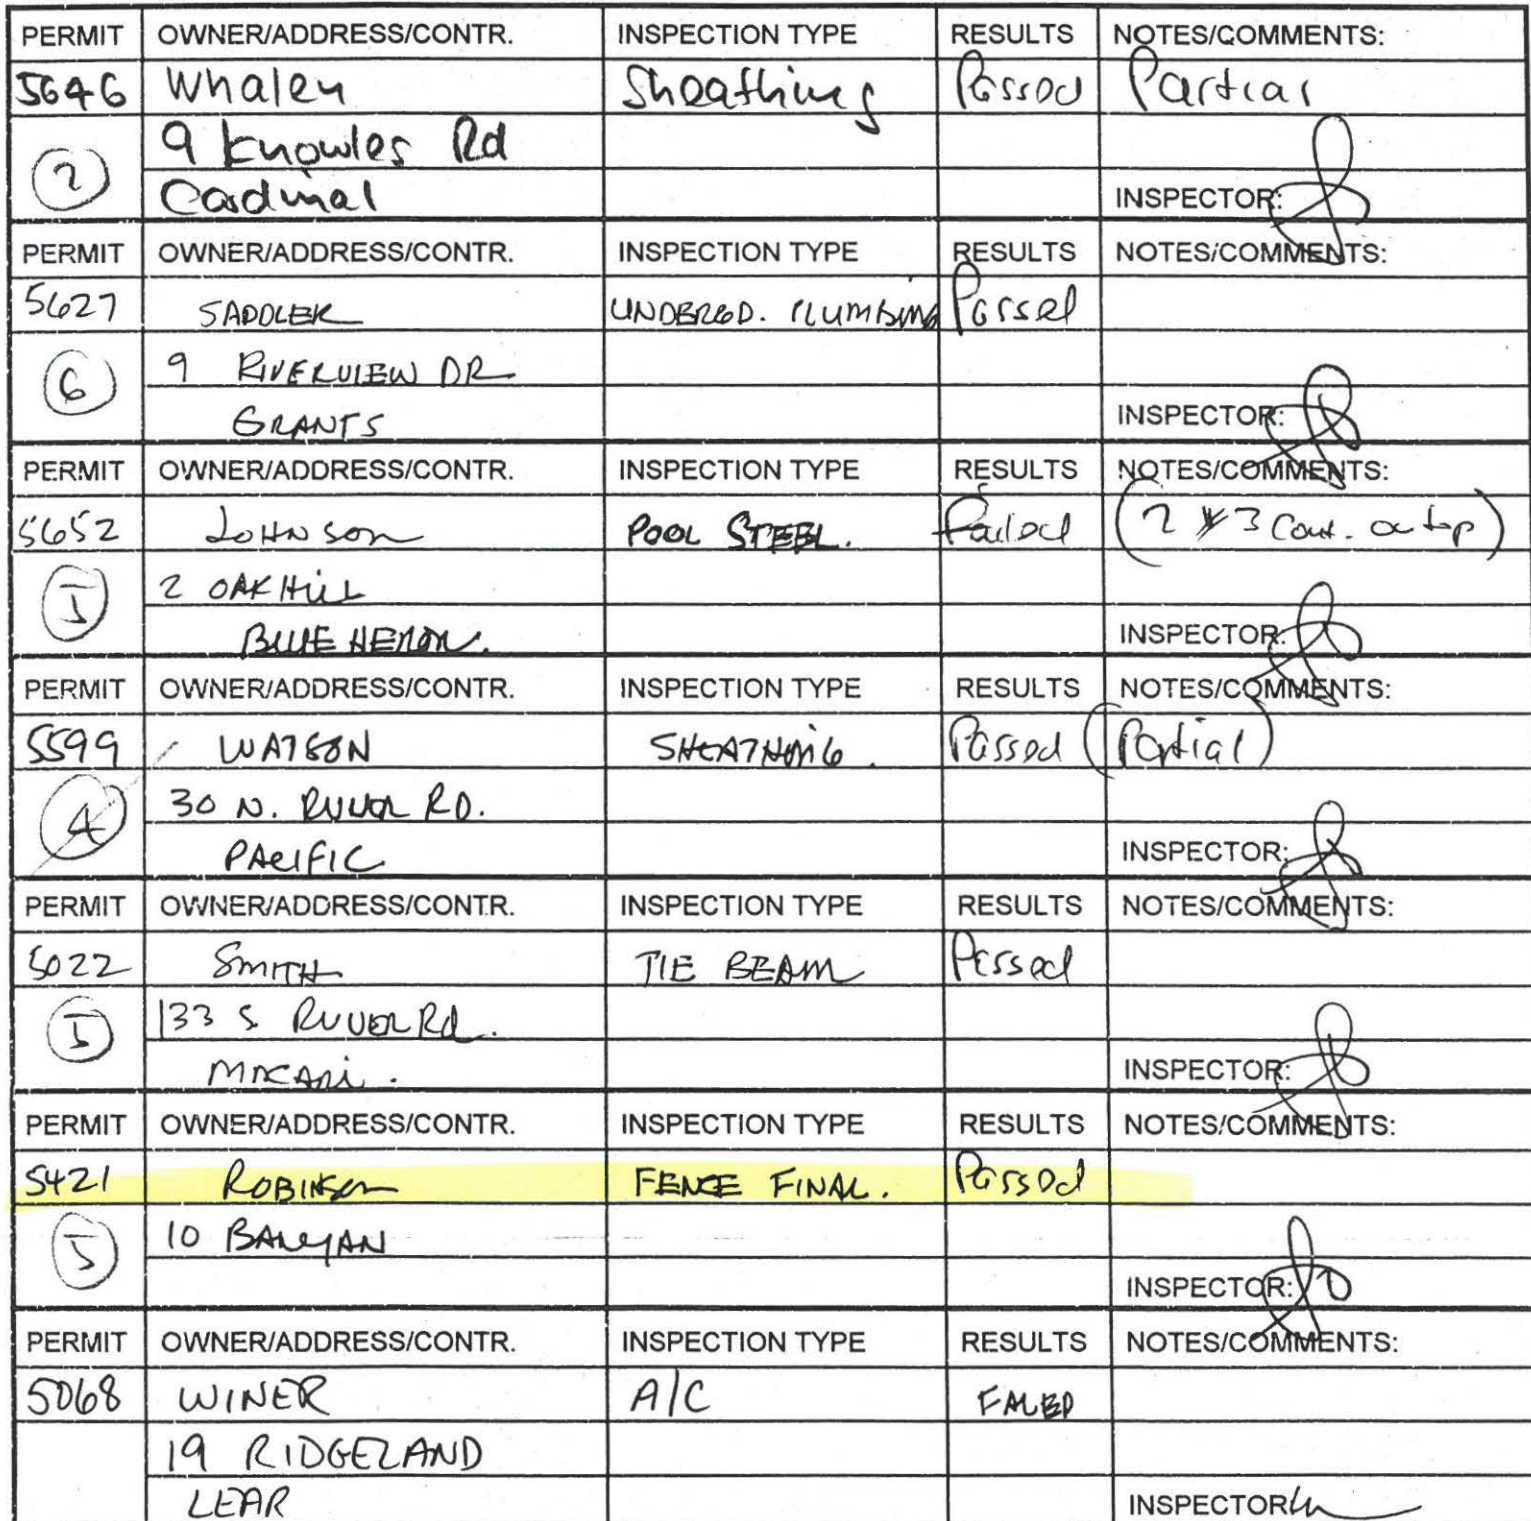 PERMIT OWNER/ADDRESS/CONTR. INSPECTION TYPE RESULTS NOTES/COMMENTS:
5646 Whalen Sheathing Passed Partial
2 9 Knowles Rd
Cardinal INSPECTOR:
PERMIT OWNER/ADDRESS/CONTR. INSPECTION TYPE RESULTS NOTES/COMMENTS:
5627 SADDLER UNDERGD. PLUMBING Passed
6 9 RIVERVIEW DR
GRANTS INSPECTOR:
PERMIT OWNER/ADDRESS/CONTR. INSPECTION TYPE RESULTS NOTES/COMMENTS:
5652 JOHNSON POOL STEEL. Failed (2 #3 Cont. on top)
2 OAK HILL
BLUE HERON. INSPECTOR:
PERMIT OWNER/ADDRESS/CONTR. INSPECTION TYPE RESULTS NOTES/COMMENTS:
5599 WATSON SHEATHING. Passed (Partial)
4 30 N. RIVER RD.
PACIFIC INSPECTOR:
PERMIT OWNER/ADDRESS/CONTR. INSPECTION TYPE RESULTS NOTES/COMMENTS:
5022 SMITH TIE BEAM Passed
133 S RIVER Rd.
INSPECTOR:
PERMIT OWNER/ADDRESS/CONTR. INSPECTION TYPE RESULTS NOTES/COMMENTS:
5421 ROBINSON FENCE FINAL. Passed
10 BANYAN
INSPECTOR:
PERMIT OWNER/ADDRESS/CONTR. INSPECTION TYPE RESULTS NOTES/COMMENTS:
5068 WINER A/C FAILED
19 RIDGELAND
LEAR INSPECTOR